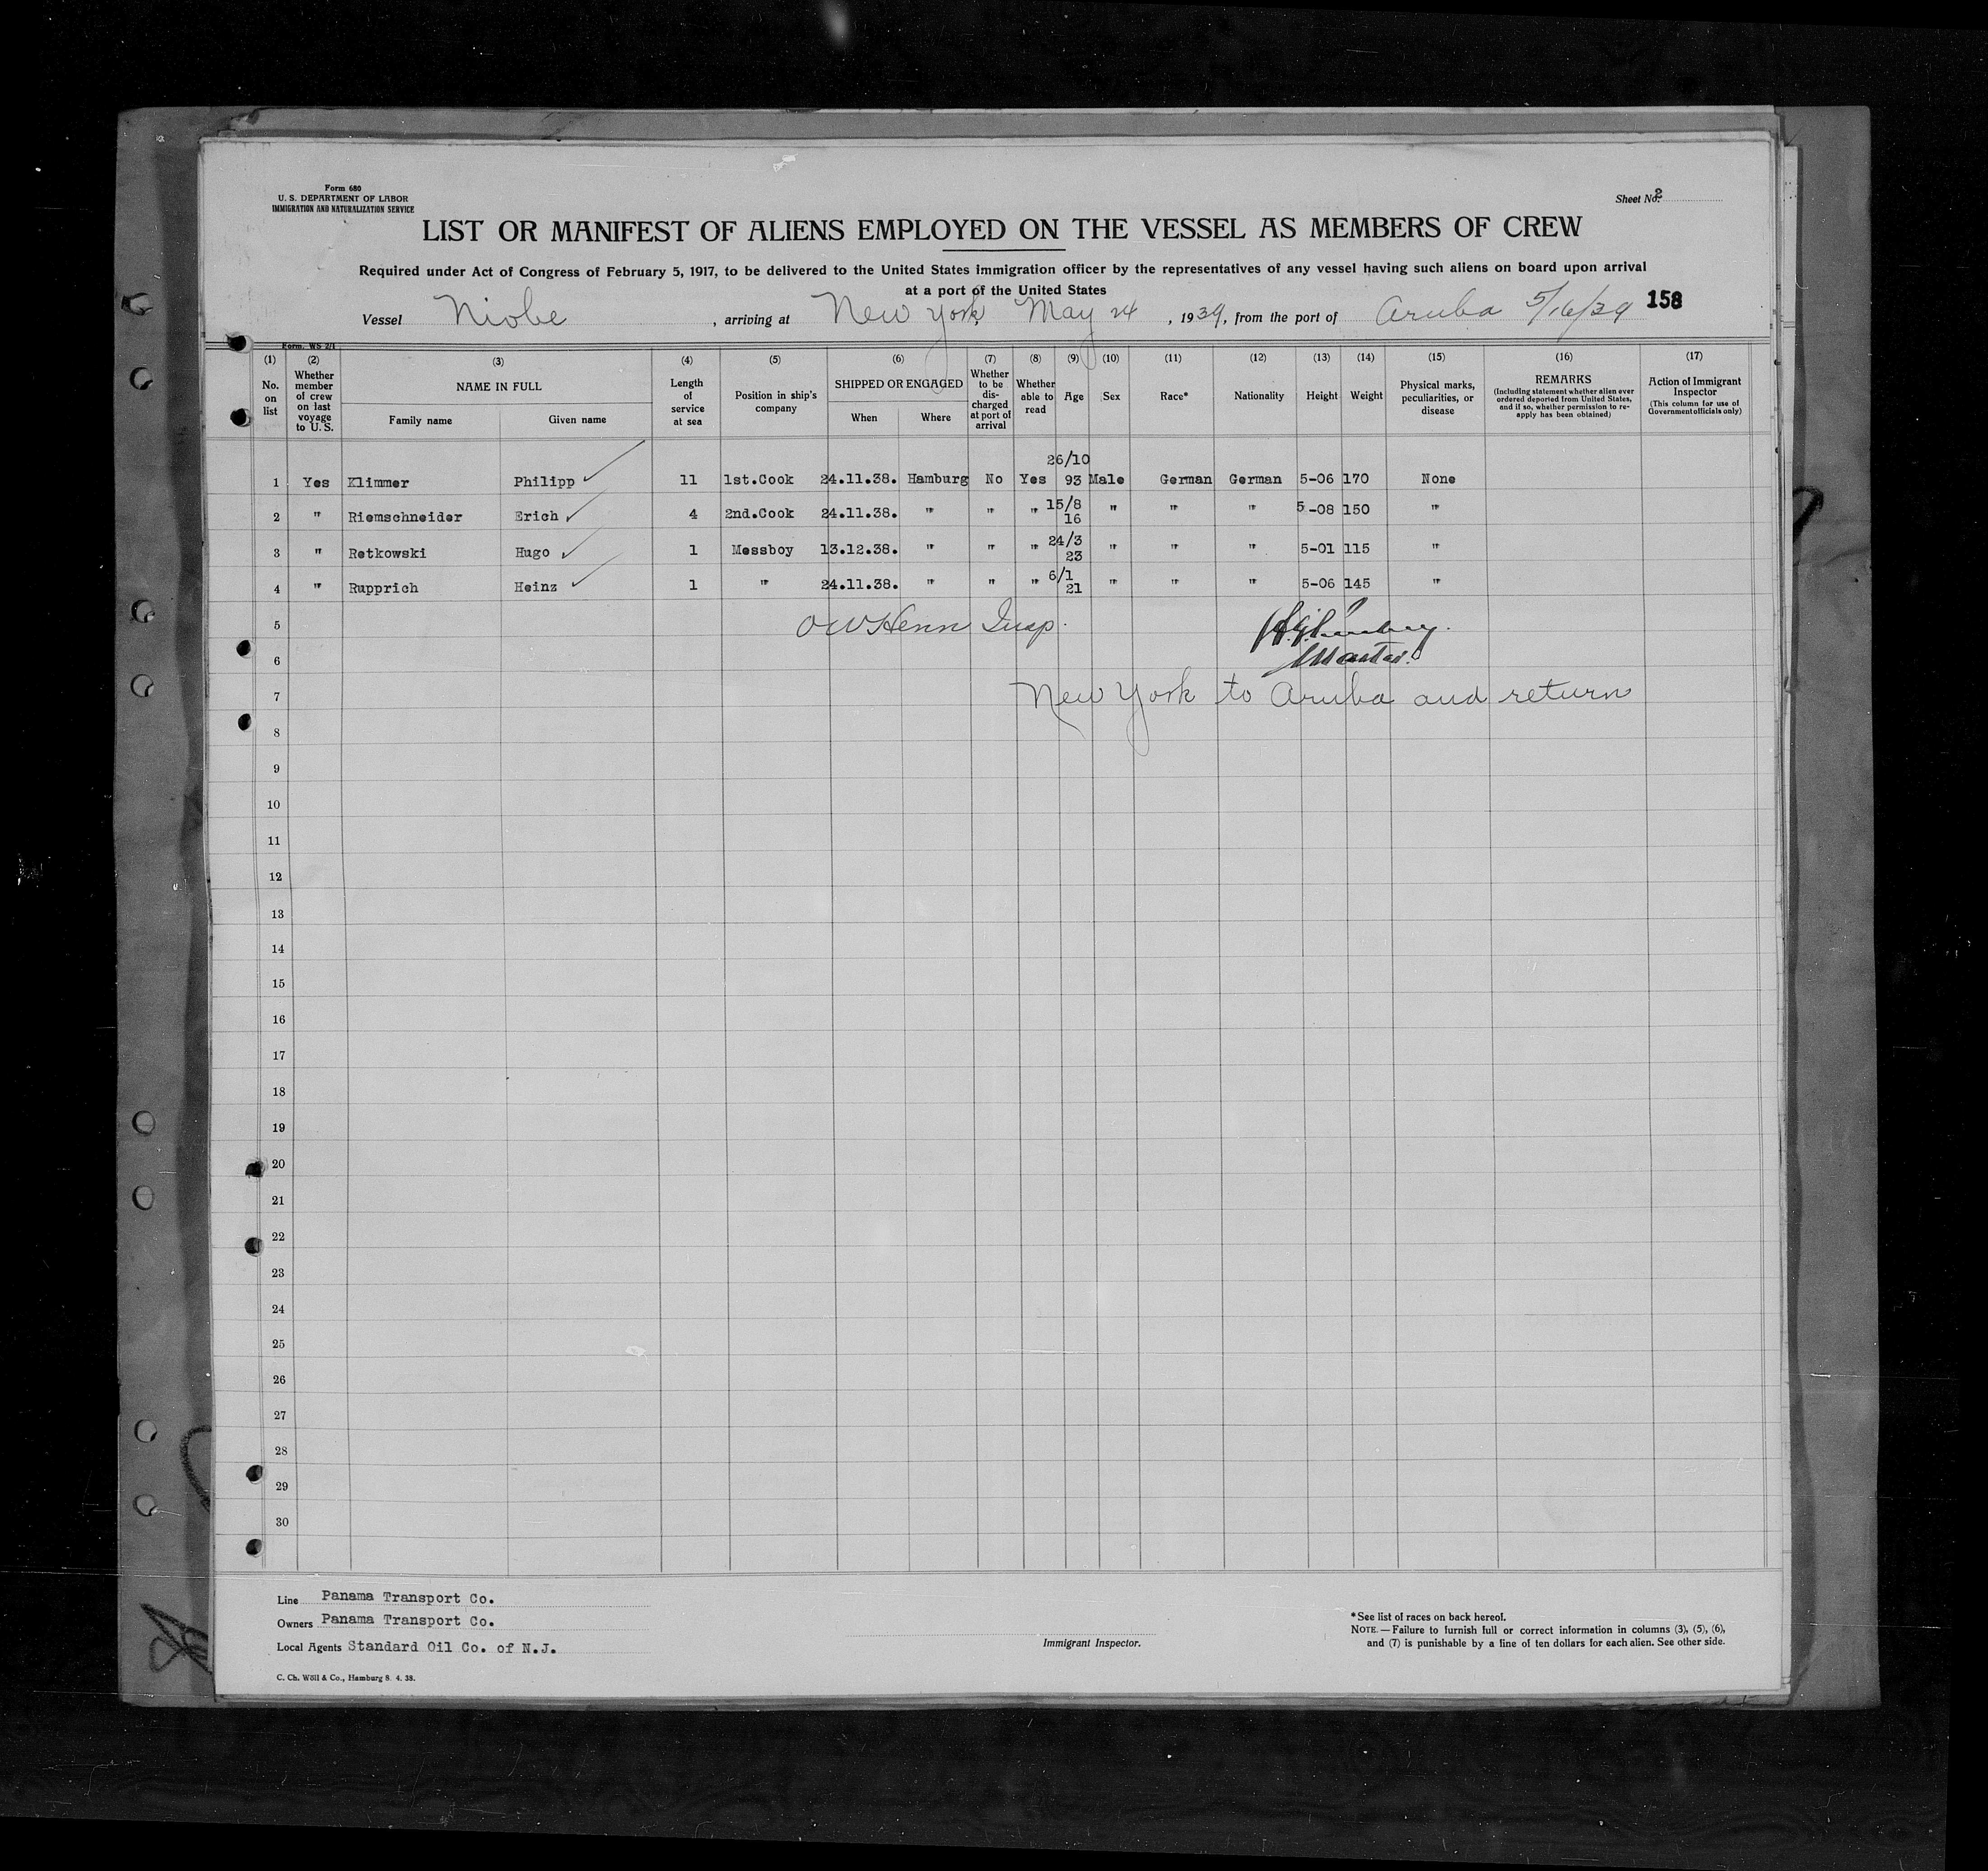 Form 680
U. S. DEPARTMENT OF LABOR
IMMIGRATION AND NATURALIZATION SERVICE
Sheet No. 2
LIST OR MANIFEST OF ALIENS EMPLOYED ON THE VESSEL AS MEMBERS OF CREW
Required under Act of Congress of February 5, 1917, to be delivered to the United States immigration officer by the representatives of any vessel having such aliens on board upon arrival
at a port of the United States
Vessel Niobe, arriving at New York, May 24, 1939, from the port of Aruba 5/16/39 158
Form. WS 2/1
(1) (2) (3) (4) (5) (6) (7) (8) (9) (10) (11) (12) (13) (14) (15) (16) (17)
No. on list
Whether member of crew on last voyage to U. S.
NAME IN FULL
Family name
Given name
Length of service at sea
Position in ship's company
SHIPPED OR ENGAGED
When
Where
Whether to be discharged at port of arrival
Whether able to read
Age
Sex
Race*
Nationality
Height
Weight
Physical marks, peculiarities, or disease
REMARKS
(Including statement whether alien ever ordered deported from United States, and if so, whether permission to reapply has been obtained)
Action of Immigrant Inspector
(This column for use of Government officials only)
1 Yes Klimmer Philipp 11 1st.Cook 24.11.38. Hamburg No Yes 26/10 93 Male German German 5-06 170 None
2 " Riemschneider Erich 4 2nd.Cook 24.11.38. " " " 15/8 16 " " " 5-08 150 "
3 " Retkowski Hugo 1 Messboy 13.12.38. " " " 24/3 23 " " " 5-01 115 "
4 " Rupprich Heinz 1 " 24.11.38. " " " 6/1 21 " " " 5-06 145 "
5 OW Henn Insp.
6 Master.
7 New York to Aruba and return
8
9
10
11
12
13
14
15
16
17
18
19
20
21
22
23
24
25
26
27
28
29
30
Line Panama Transport Co.
Owners Panama Transport Co.
Local Agents Standard Oil Co. of N.J.
C. Ch. Wöll & Co., Hamburg 8. 4. 38.
Immigrant Inspector.
* See list of races on back hereof.
NOTE.—Failure to furnish full or correct information in columns (3), (5), (6),
and (7) is punishable by a fine of ten dollars for each alien. See other side.